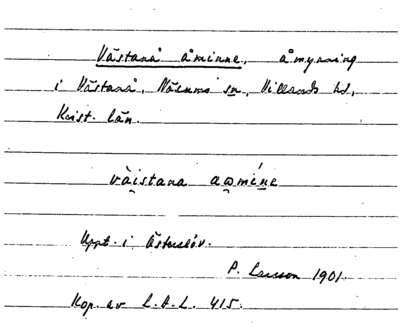 Västanå åminne, åmynning
i Västanå, Näsums sn, Villands hd,
Krist. län.
vàistana aǫmíne
Uppt. i Österslöv.
P. Larsson 1901.
Kop. av L.A.L. 415.